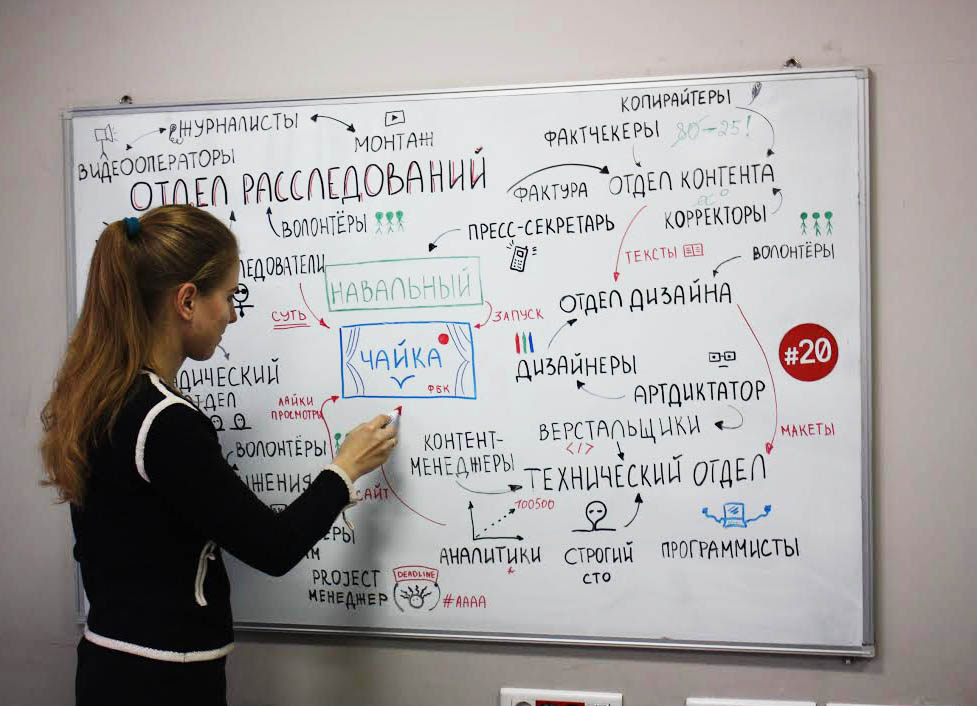 КОПИРАЙТЕРЫ
ЖУРНАЛИСТЫ
МОНТАЖ
ФАКТЧЕКЕРЫ
80-25!
ВИДЕООПЕРАТОРЫ
ОТДЕЛ РАССЛЕДОВАНИЙ
ФАКТУРА
ОТДЕЛ КОНТЕНТА
ВОЛОНТЁРЫ
ПРЕСС-СЕКРЕТАРЬ
КОРРЕКТОРЫ
ТЕКСТЫ
ВОЛОНТЁРЫ
ЛЕДОВАТЕЛИ
НАВАЛЬНЫЙ
ОТДЕЛ ДИЗАЙНА
СУТЬ
ЗАПУСК
ЧАЙКА
ФБК
#20
ДИЗАЙНЕРЫ
ДИЧЕСКИЙ
ТДЕЛ
АРТДИКТАТОР
ЛАЙКИ
ПРОСМОТРЫ
ВЕРСТАЛЬЩИКИ
</>
МАКЕТЫ
ВОЛОНТЁРЫ
КОНТЕНТ-
МЕНЕДЖЕРЫ
ТЕХНИЧЕСКИЙ ОТДЕЛ
ЖЕНИЯ
САЙТ
100500
АНАЛИТИКИ
СТРОГИЙ
СТО
ПРОГРАММИСТЫ
PROJECT
МЕНЕДЖЕР
DEADLINE
#АААА